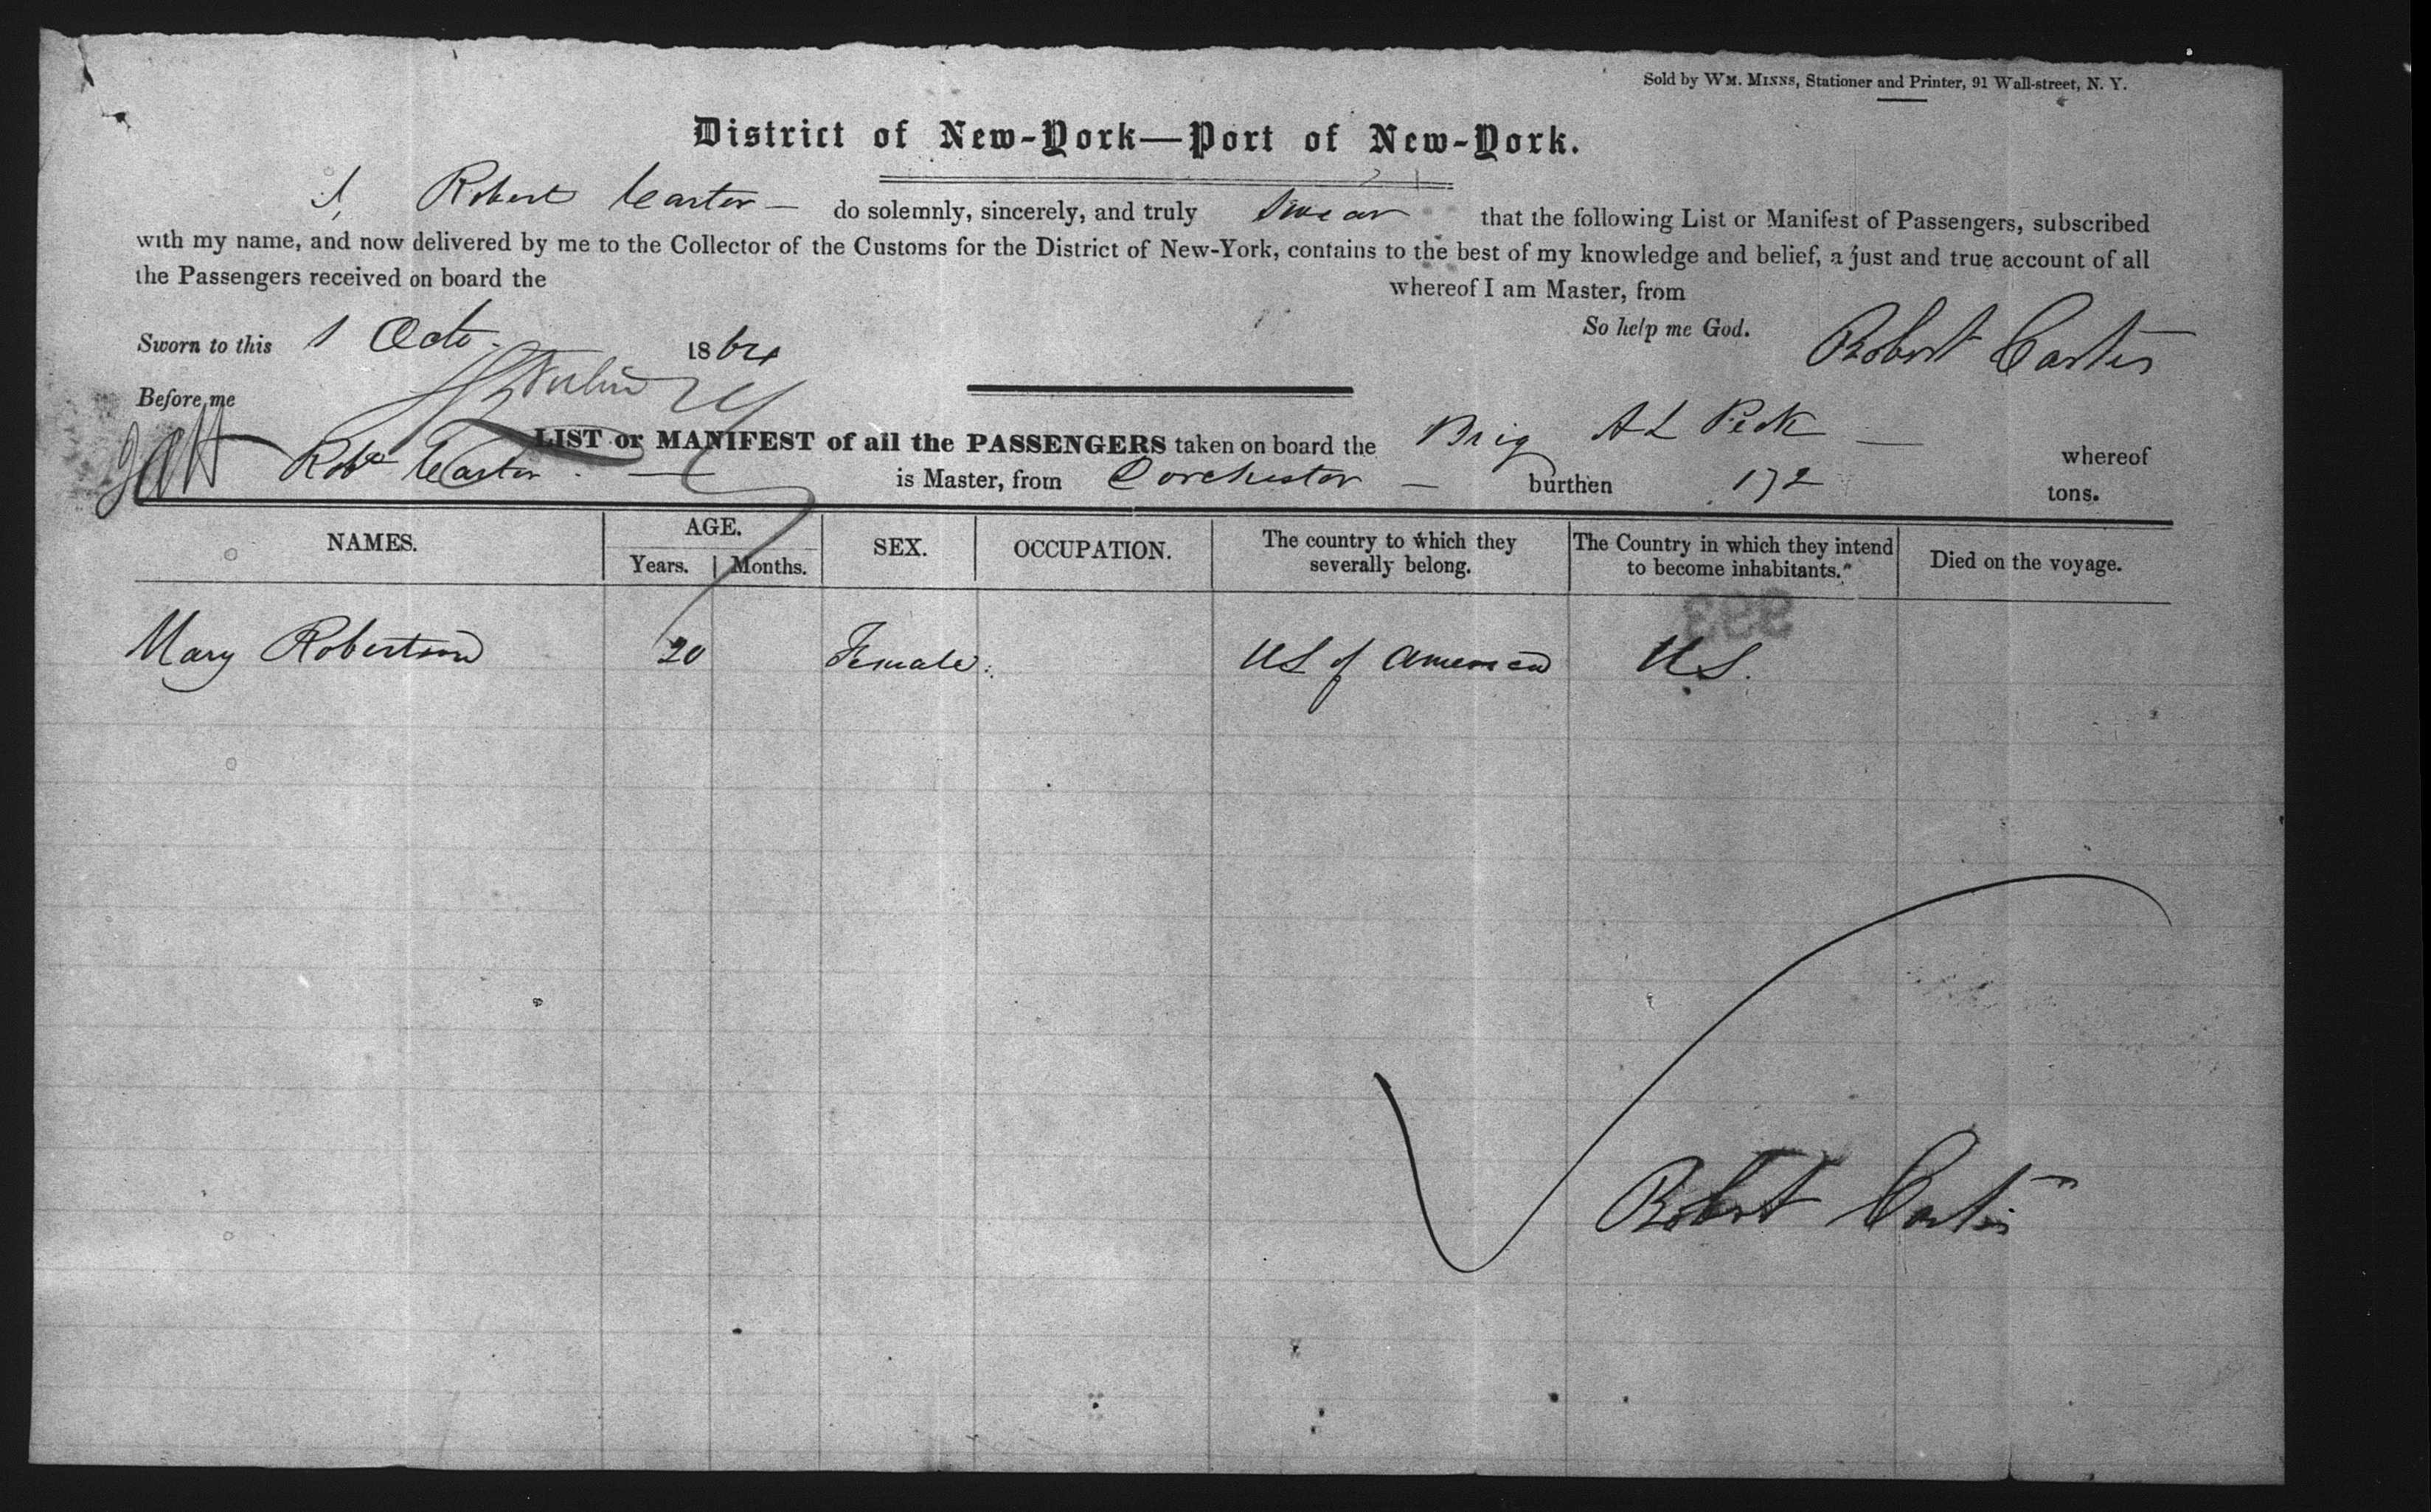 Sold by WM. MINNS, Stationer and Printer, 91 Wall-street, N. Y.
District of New-York—Port of New-York.
I, Robert Carter — do solemnly, sincerely, and truly swear that the following List or Manifest of Passengers, subscribed
with my name, and now delivered by me to the Collector of the Customs for the District of New-York, contains to the best of my knowledge and belief, a just and true account of all
the Passengers received on board the whereof I am Master, from
So help me God. Robert Carter
Sworn to this 1 Octo. 1864
Before me
LIST or MANIFEST of all the PASSENGERS taken on board the Brig A L Peck — whereof
Robt Carter — is Master, from Dorchester — burthen 172 tons.
NAMES. AGE. SEX. OCCUPATION. The country to which they severally belong. The Country in which they intend to become inhabitants." Died on the voyage.
Years. Months.
993
Mary Robertson 20 Female. US of America US.
Robert Carter